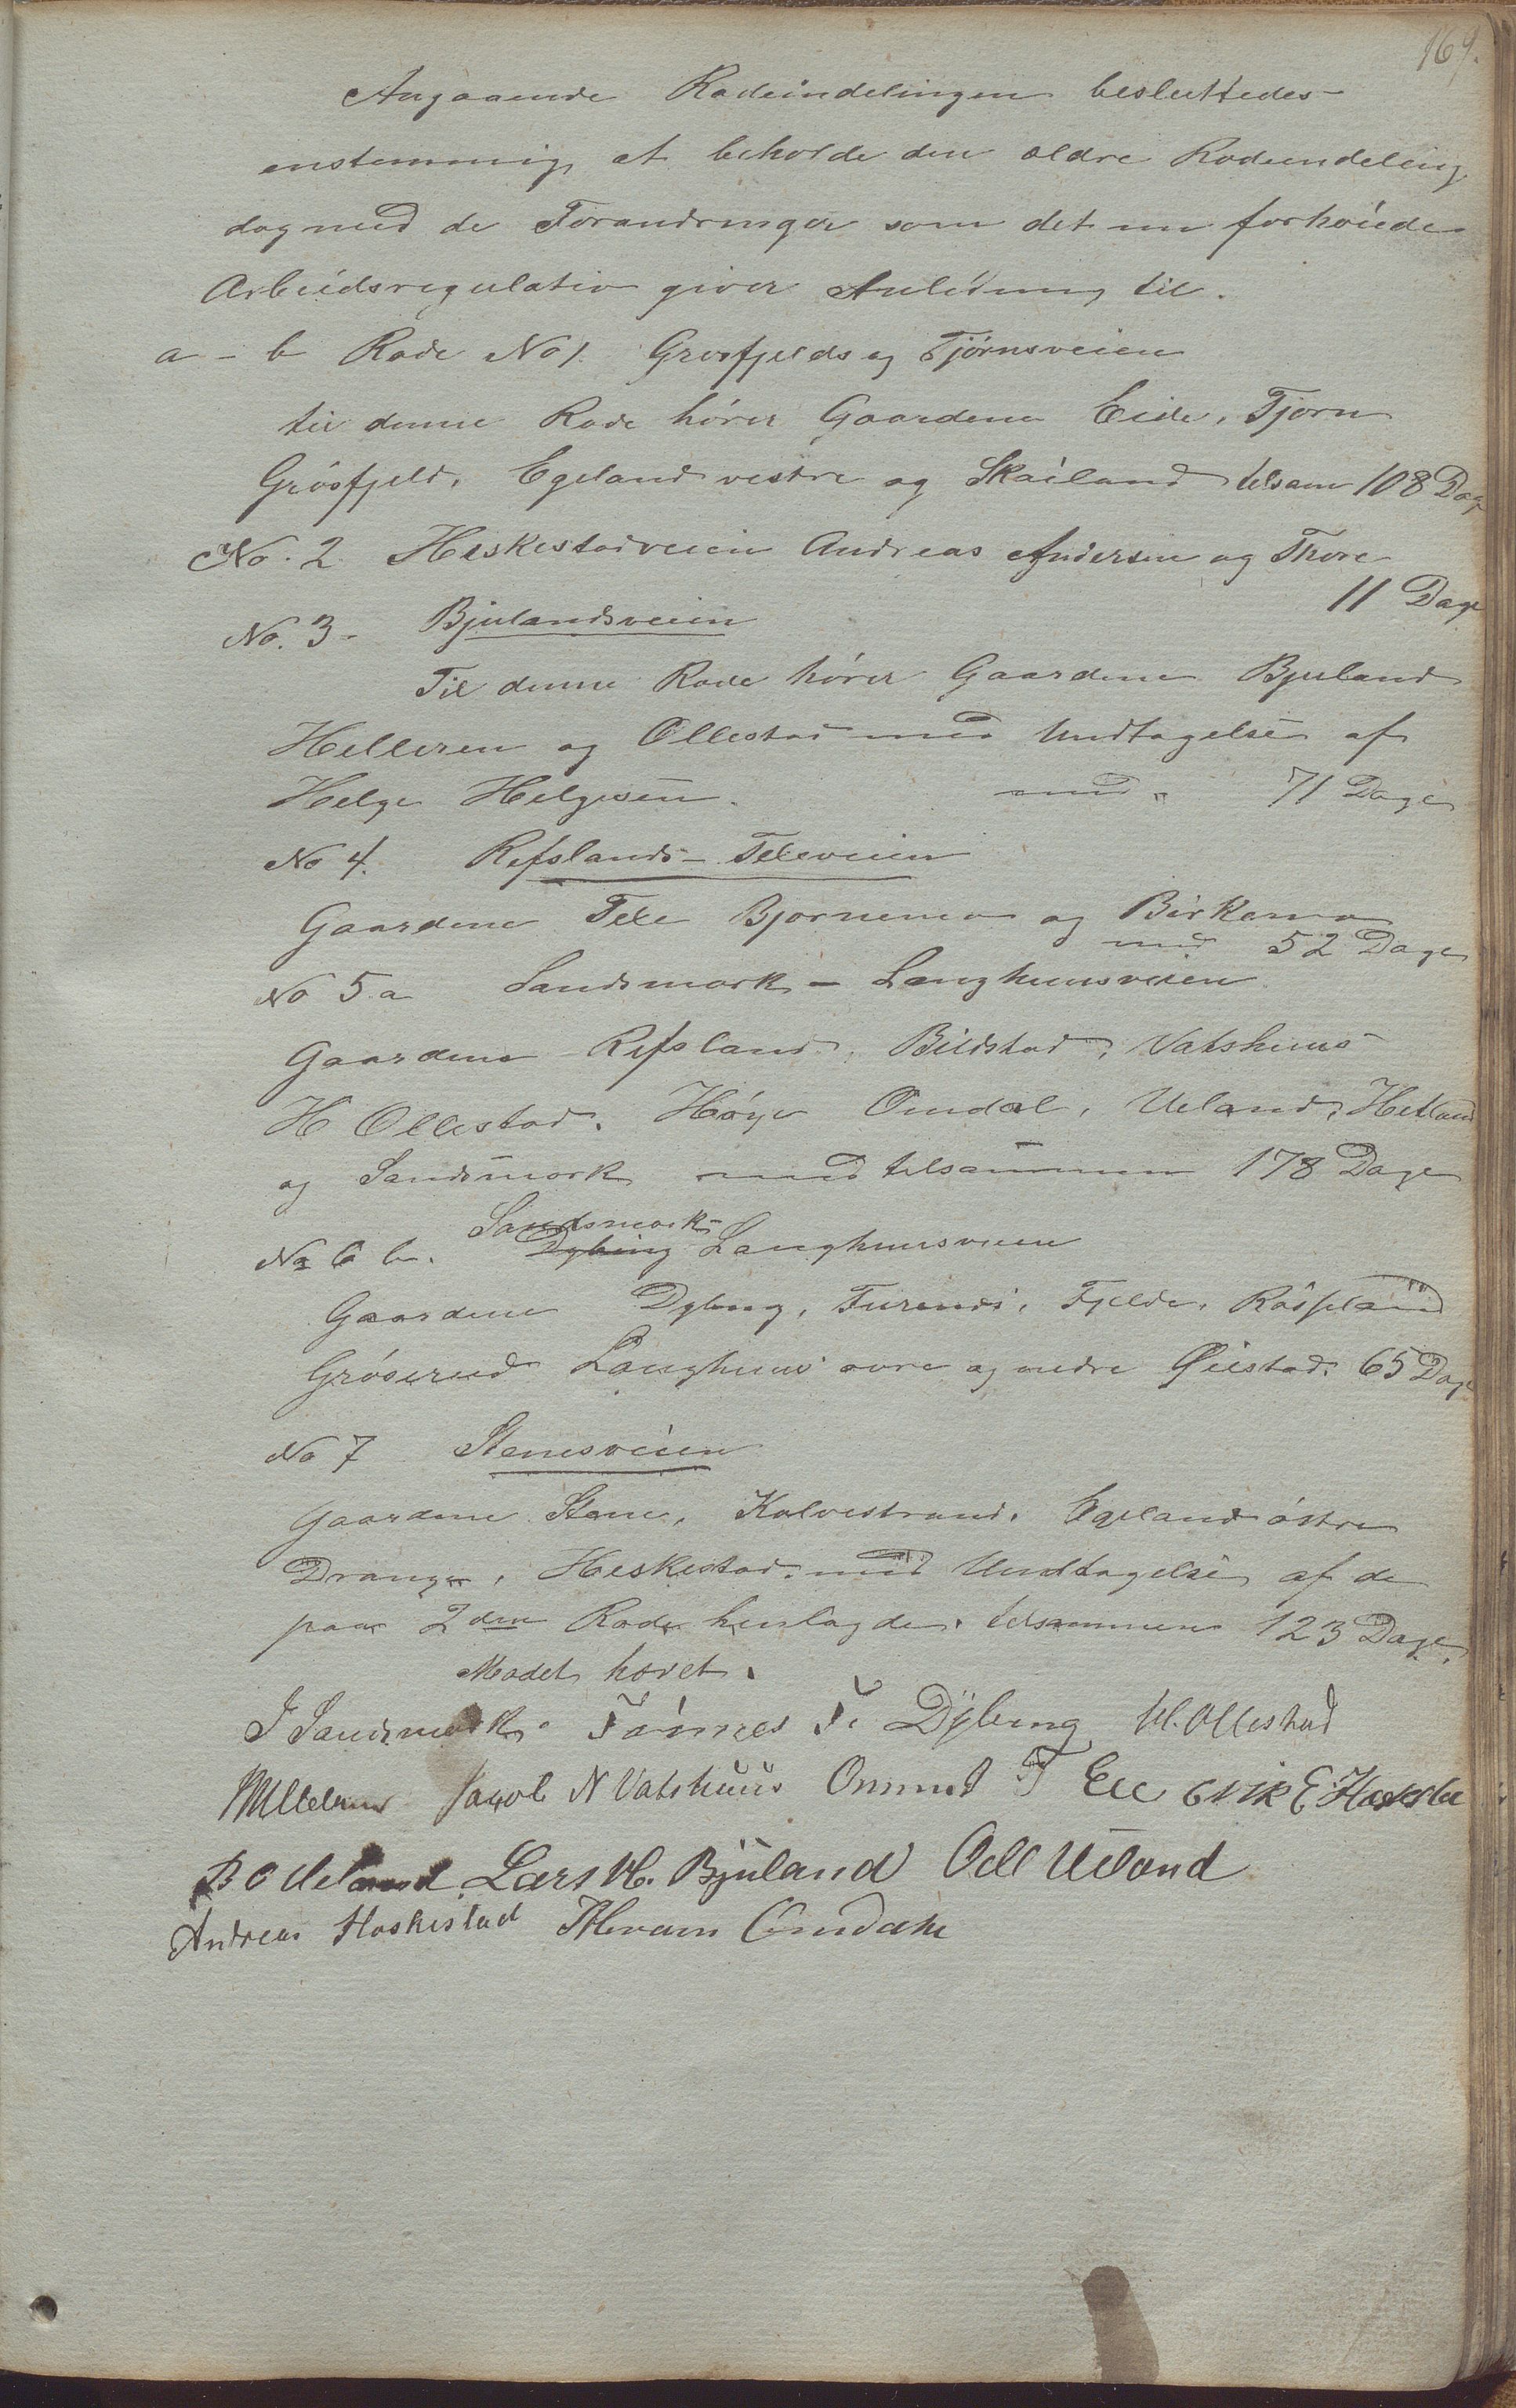 169.
Angaaende Rodeindelingen besluttedes
enstemmig at beholde den ældre Rodeindeling
dog med de Forandringer som det nu forhøiede
Arbeidsregulativ giver Anledning til.
a - b Rode No 1. Grøsfjelds og Tjørnsveien
til denne Rode hører Gaardene Eide, Tjørn
Grøsfjeld, Egeland vestre og Skailand tilsam 108 Dage
No. 2 Heskestadveien Andreas Andersen og Thore
11 Dage
No. 3. Bjulandsveien
Til denne Rode hører Gaardene Bjuland
Helleren og Ollestad med Undtagelse af
Helge Helgesen. med 71 Dage
No 4. Refslands-Televeien
Gaardene Tele Bjørnemo og Birkemo
med 52 Dage
No 5.a Sandsmark - Langhuusveien
Gaardene Refsland, Bildstad, Vatshuus
H Ollestad, Høyer Omdal, Ueland, Hetland
og Sandsmark med tilsammen 178 Dage
Sandsmark-
No 6 b. Dybing Langhuusveien
Gaardene Dybing, Fjelde,
Grøserud Langhuus øvre og nedre Øiestad. 65 Dage
No 7 Stenesveien
Gaardene Stene, Kalvestrand, Egeland østre
Drange, Heskestad, med Undtagelse af de
paa 2den Rode henlagde, tilsammen 123 Dage.
Mødet hævet.
J Sandsmark. Tønnes T. Dÿbing H. Ollestad
Jacob N Vatshuus Ommund T Eie Erik E Heskesta
B O Ueland Lars H. Bjuland Odd Ueland
Andreas Heskestad Omdahl